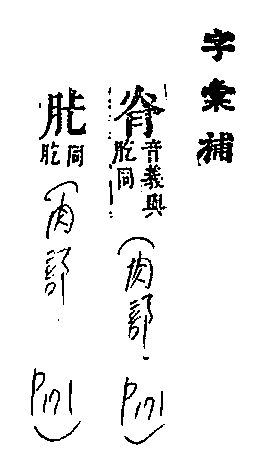 字彙補
音義與
肐同
(肉部.
P171)
同
肐
(肉部.
P171)